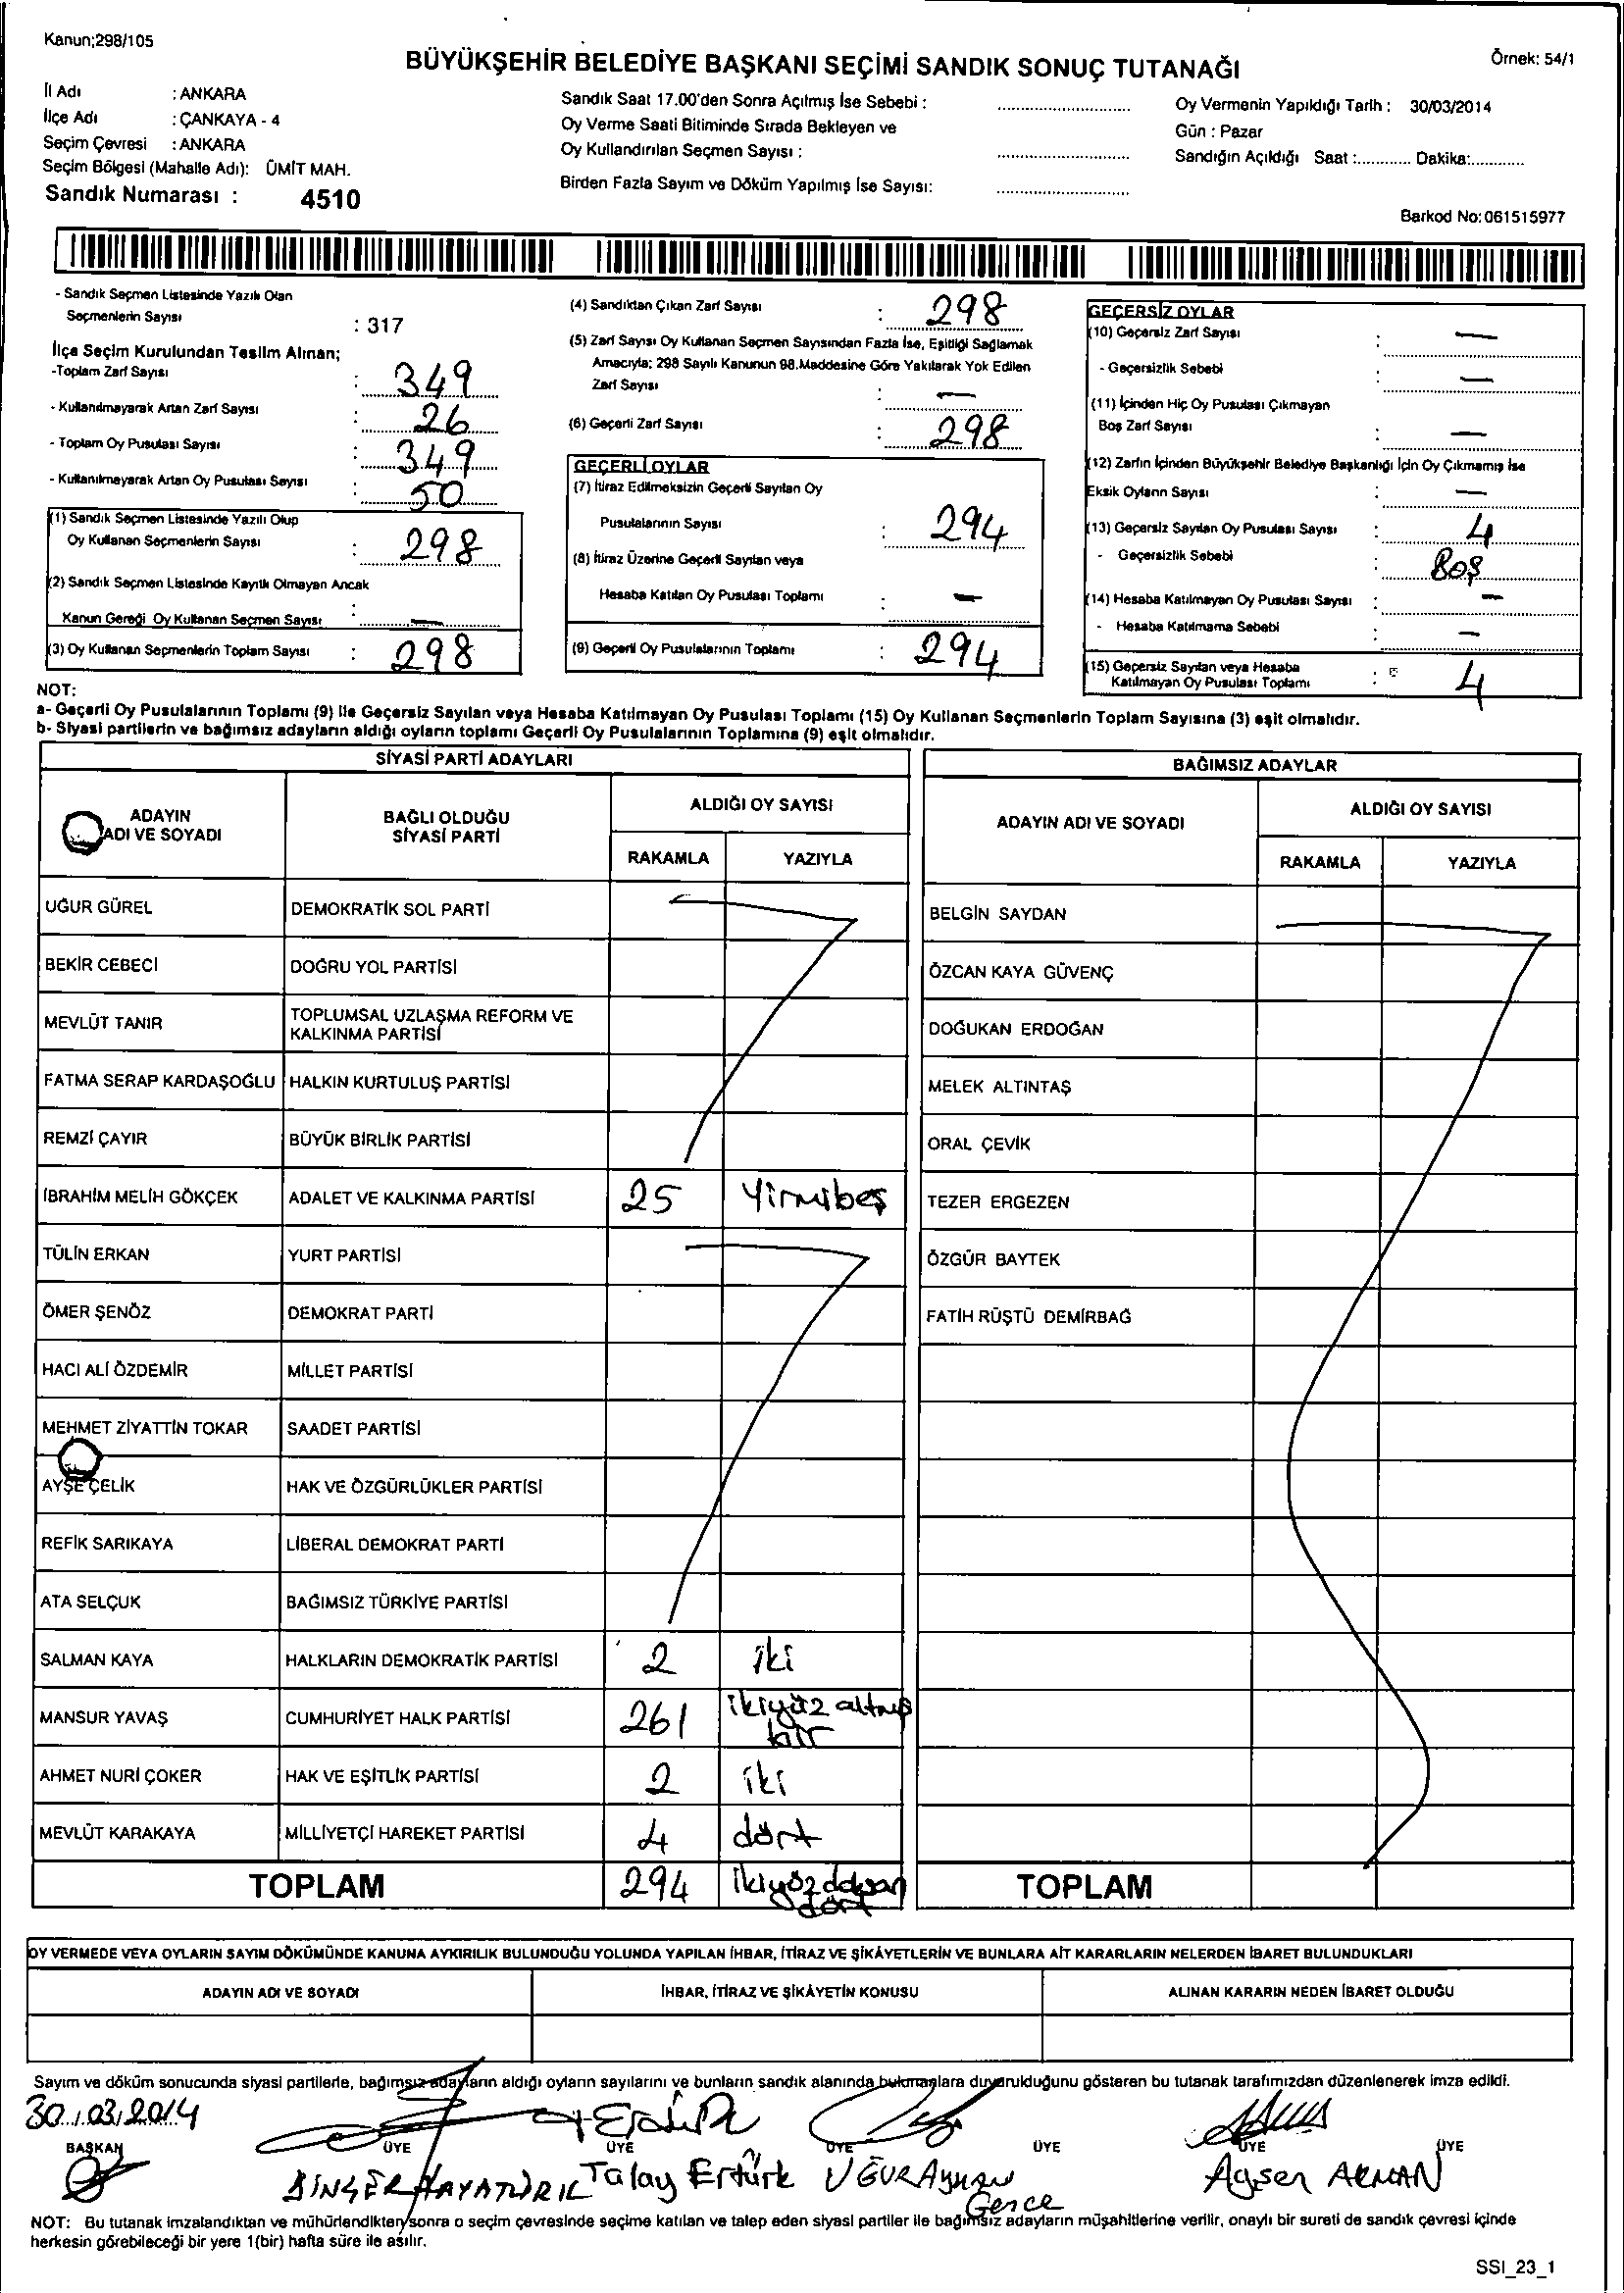 Kanun;298/105
BÜYÜKŞEHİR BELEDİYE BAŞKANI SEÇİMİ SANDIK SONUÇ TUTANAĞI
Örnek: 54/1
İl Adı : ANKARA
İlçe Adı : ÇANKAYA - 4
Seçim Çevresi : ANKARA
Seçim Bölgesi (Mahalle Adı): ÜMİT MAH.
Sandık Numarası : 4510
Sandık Saat 17.00'den Sonra Açılmış İse Sebebi :
Oy Verme Saati Bitiminde Sırada Bekleyen ve
Oy Kullandırılan Seçmen Sayısı :
Birden Fazla Sayım ve Döküm Yapılmış İse Sayısı:
Oy Vermenin Yapıldığı Tarih : 30/03/2014
Gün : Pazar
Sandığın Açıldığı Saat :............ Dakika:............
Barkod No:061515977
- Sandık Seçmen Listesinde Yazılı Olan
Seçmenlerin Sayısı : 317
İlçe Seçim Kurulundan Teslim Alınan;
-Toplam Zarf Sayısı : 349
- Kullanılmayarak Artan Zarf Sayısı : 26
- Toplam Oy Pusulası Sayısı : 349
- Kullanılmayarak Artan Oy Pusulası Sayısı : 50
(1) Sandık Seçmen Listesinde Yazılı Olup
Oy Kullanan Seçmenlerin Sayısı : 298
(2) Sandık Seçmen Listesinde Kayıtlı Olmayan Ancak
Kanun Gereği Oy Kullanan Seçmen Sayısı : —
(3) Oy Kullanan Seçmenlerin Toplam Sayısı : 298
(4) Sandıktan Çıkan Zarf Sayısı : 298
(5) Zarf Sayısı Oy Kullanan Seçmen Sayısından Fazla İse, Eşitliği Sağlamak
Amacıyla; 298 Sayılı Kanunun 98.Maddesine Göre Yakılarak Yok Edilen
Zarf Sayısı : —
(6) Geçerli Zarf Sayısı : 298
GEÇERLİ OYLAR
(7) İtiraz Edilmeksizin Geçerli Sayılan Oy
Pusulalarının Sayısı : 294
(8) İtiraz Üzerine Geçerli Sayılan veya
Hesaba Katılan Oy Pusulası Toplamı : —
(9) Geçerli Oy Pusulalarının Toplamı : 294
GEÇERSİZ OYLAR
(10) Geçersiz Zarf Sayısı : —
- Geçersizlik Sebebi : —
(11) İçinden Hiç Oy Pusulası Çıkmayan
Boş Zarf Sayısı : —
(12) Zarfın İçinden Büyükşehir Belediye Başkanlığı İçin Oy Çıkmamış İse
Eksik Oyların Sayısı : —
(13) Geçersiz Sayılan Oy Pusulası Sayısı : 4
- Geçersizlik Sebebi : Boş
(14) Hesaba Katılmayan Oy Pusulası Sayısı : —
- Hesaba Katılmama Sebebi : —
(15) Geçersiz Sayılan veya Hesaba
Katılmayan Oy Pusulası Toplamı : 4
NOT:
a- Geçerli Oy Pusulalarının Toplamı (9) ile Geçersiz Sayılan veya Hesaba Katılmayan Oy Pusulası Toplamı (15) Oy Kullanan Seçmenlerin Toplam Sayısına (3) eşit olmalıdır.
b- Siyasi partilerin ve bağımsız adayların aldığı oyların toplamı Geçerli Oy Pusulalarının Toplamına (9) eşit olmalıdır.
SİYASİ PARTİ ADAYLARI
ADAYIN
ADI VE SOYADI
BAĞLI OLDUĞU
SİYASİ PARTİ
ALDIĞI OY SAYISI
RAKAMLA YAZIYLA
UĞUR GÜREL DEMOKRATİK SOL PARTİ
BEKİR CEBECİ DOĞRU YOL PARTİSİ
MEVLÜT TANIR TOPLUMSAL UZLAŞMA REFORM VE
KALKINMA PARTİSİ
FATMA SERAP KARDAŞOĞLU HALKIN KURTULUŞ PARTİSİ
REMZİ ÇAYIR BÜYÜK BİRLİK PARTİSİ
İBRAHİM MELİH GÖKÇEK ADALET VE KALKINMA PARTİSİ 25 Yirmibeş
TÜLİN ERKAN YURT PARTİSİ
ÖMER ŞENÖZ DEMOKRAT PARTİ
HACI ALİ ÖZDEMİR MİLLET PARTİSİ
MEHMET ZİYATTİN TOKAR SAADET PARTİSİ
AYŞE ÇELİK HAK VE ÖZGÜRLÜKLER PARTİSİ
REFİK SARIKAYA LİBERAL DEMOKRAT PARTİ
ATA SELÇUK BAĞIMSIZ TÜRKİYE PARTİSİ
SALMAN KAYA HALKLARIN DEMOKRATİK PARTİSİ 2 iki
MANSUR YAVAŞ CUMHURİYET HALK PARTİSİ 261 ikiyüz altmış
bir
AHMET NURİ ÇOKER HAK VE EŞİTLİK PARTİSİ 2 iki
MEVLÜT KARAKAYA MİLLİYETÇİ HAREKET PARTİSİ 4 dört
TOPLAM 294 ikiyüzdoksan
dört
BAĞIMSIZ ADAYLAR
ADAYIN ADI VE SOYADI
ALDIĞI OY SAYISI
RAKAMLA YAZIYLA
BELGİN SAYDAN
ÖZCAN KAYA GÜVENÇ
DOĞUKAN ERDOĞAN
MELEK ALTINTAŞ
ORAL ÇEVİK
TEZER ERGEZEN
ÖZGÜR BAYTEK
FATİH RÜŞTÜ DEMİRBAĞ
TOPLAM
OY VERMEDE VEYA OYLARIN SAYIM DÖKÜMÜNDE KANUNA AYKIRILIK BULUNDUĞU YOLUNDA YAPILAN İHBAR, İTİRAZ VE ŞİKÂYETLERİN VE BUNLARA AİT KARARLARIN NELERDEN İBARET BULUNDUKLARI
ADAYIN ADI VE SOYADI İHBAR, İTİRAZ VE ŞİKÂYETİN KONUSU ALINAN KARARIN NEDEN İBARET OLDUĞU
Sayım ve döküm sonucunda siyasi partilerle, bağımsız adayların aldığı oyların sayılarını ve bunların sandık alanında bulunanlara duyurulduğunu gösteren bu tutanak tarafımızdan düzenlenerek imza edildi.
30.03.2014
BAŞKAN ÜYE ÜYE ÜYE ÜYE ÜYE ÜYE
Talay Ertürk UĞUR Ayhan Gence Ayşen AKMAN
NOT: Bu tutanak imzalandıktan ve mühürlendikten sonra o seçim çevresinde seçime katılan ve talep eden siyasi partiler ile bağımsız adayların müşahitlerine verilir, onaylı bir sureti de sandık çevresi içinde
herkesin görebileceği bir yere 1(bir) hafta süre ile asılır.
SSI_23_1